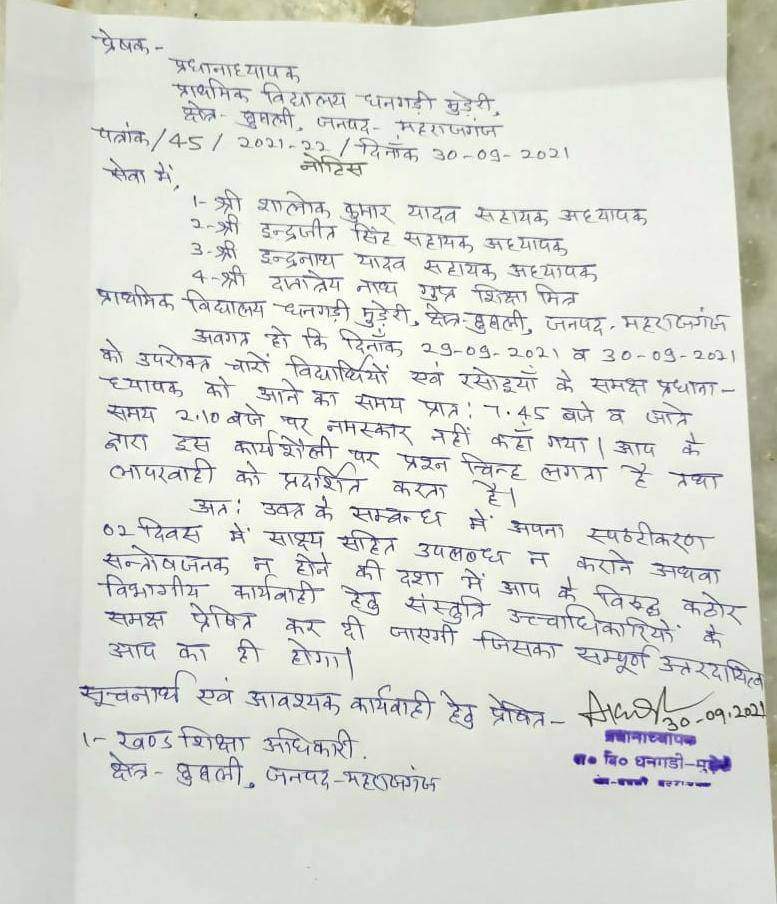 प्रेषक-
प्रधानाध्यापक
प्राथमिक विद्यालय धनगड़ी मुड़ेरी,
क्षेत्र- घुघली, जनपद- महराजगंज
पत्रांक/45/2021-22/दिनाँक 30-09-2021
नोटिस
सेवा में,
1- श्री शालोक कुमार यादव सहायक अध्यापक
2- श्री इन्द्रजीत सिंह सहायक अध्यापक
3- श्री इन्द्रनाथ यादव सहायक अध्यापक
4- श्री दत्तात्रेय नाथ गुप्त शिक्षा मित्र
प्राथमिक विद्यालय धनगड़ी मुड़ेरी, क्षेत्र-घुघली, जनपद-महराजगंज
अवगत हो कि दिनाँक 29-09-2021 व 30-09-2021
को उपरोक्त चारों विद्यार्थियों एवं रसोइयाँ के समक्ष प्रधाना-
ध्यापक को आने का समय प्रात: 7.45 बजे व जाते
समय 2.10 बजे पर नमस्कार नहीं कहाँ गया। आप के
द्वारा इस कार्यशैली पर प्रश्न चिन्ह लगता है तथा
लापरवाही को प्रदर्शित करता है।
अत: उक्त के सम्बन्ध में अपना स्पष्टीकरण
02 दिवस में साक्ष्य सहित उपलब्ध न कराने अथवा
सन्तोषजनक न होने की दशा में आप के विरुद्ध कठोर
विभागीय कार्यवाही हेतु संस्तुति उच्चाधिकारियों के
समक्ष प्रेषित कर दी जाएगी जिसका सम्पूर्ण उत्तरदायित्व
आप का ही होगा।
सूचनार्थ एवं आवश्यक कार्यवाही हेतु प्रेषित-
30-09-2021
1- खण्ड शिक्षा अधिकारी.
क्षेत्र- घुघली, जनपद-महराजगंज
प्रधानाध्यापक
प्रा० वि० धनगडी-मुड़ेरी